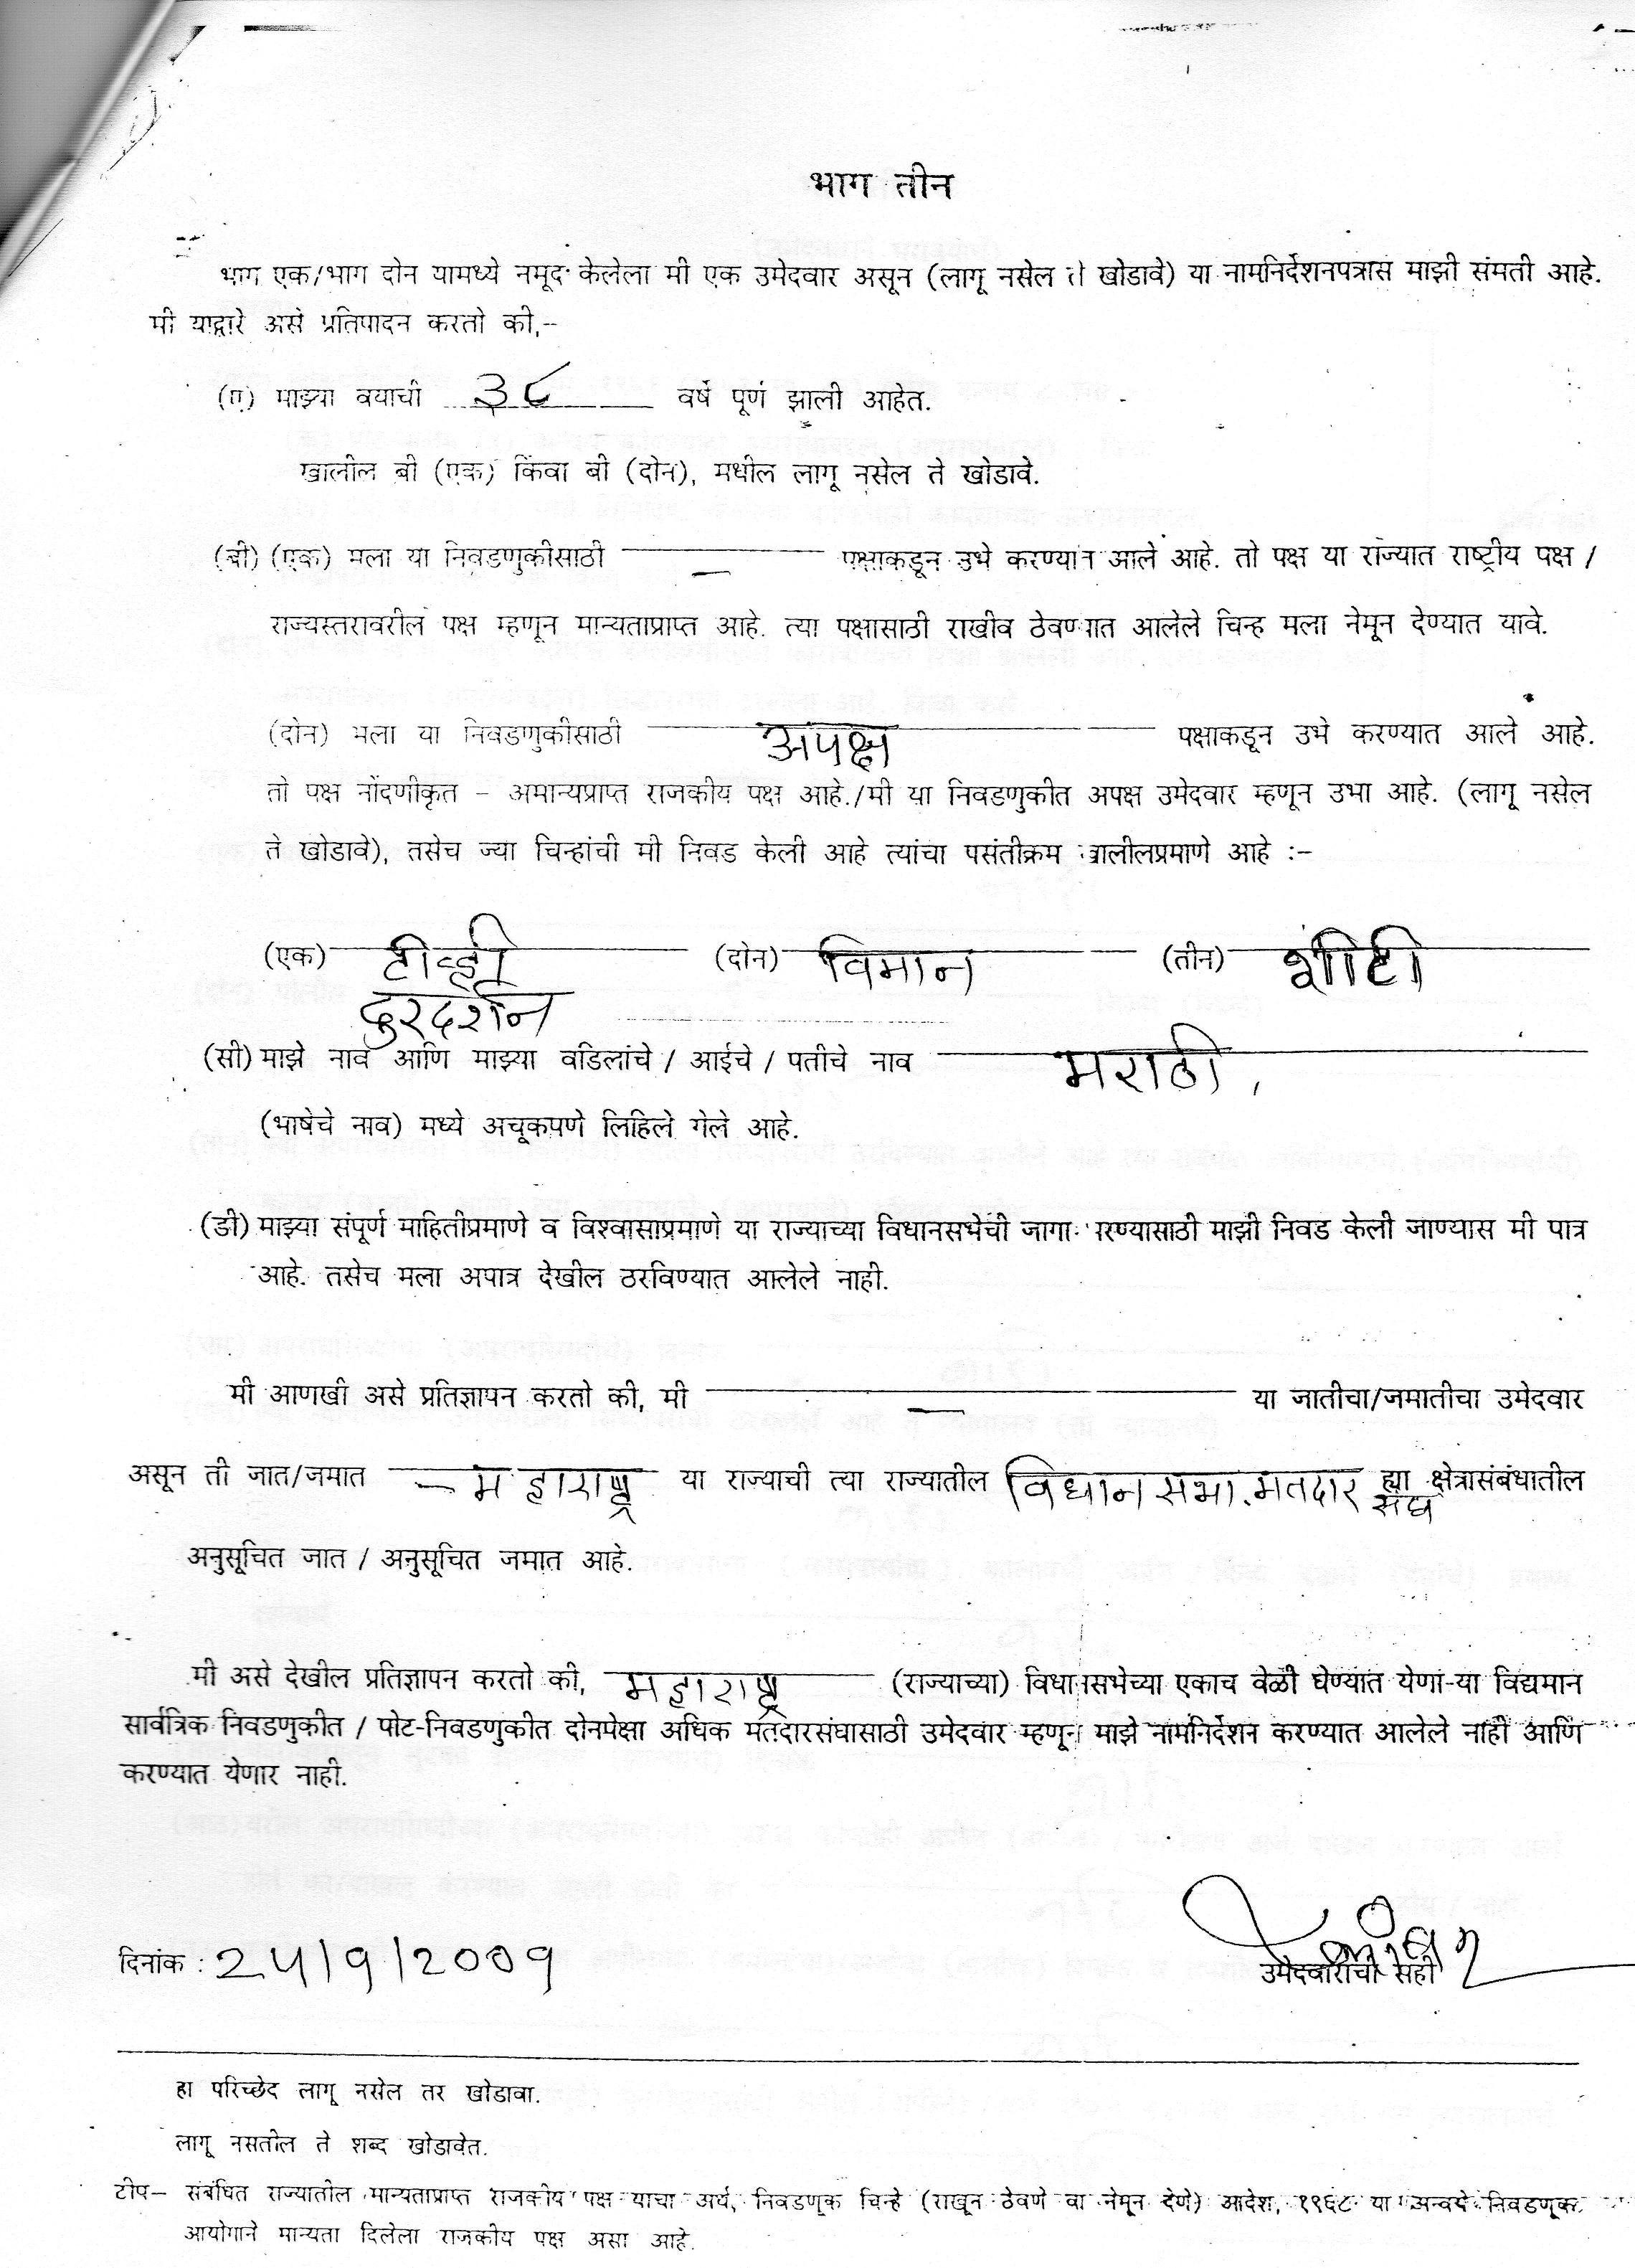 भाग तीन
भाग एक/भाग दोन यामध्ये नमूद केलेला मी एक उमेदवार असून (लागू नसेल ते खोडावे) या नामनिर्देशनपत्रास माझी संमती आहे.
मी याद्वारे असे प्रतिपादन करतो की,–
(ए) माझ्या वयाची ३८ वर्षे पूर्ण झाली आहेत.
खालील बी (एक) किंवा बी (दोन), मधील लागू नसेल ते खोडावे.
(बी) (एक) मला या निवडणुकीसाठी — पक्षाकडून उभे करण्यात आले आहे. तो पक्ष या राज्यात राष्ट्रीय पक्ष /
राज्यस्तरावरील पक्ष म्हणून मान्यताप्राप्त आहे. त्या पक्षासाठी राखीव ठेवण्यात आलेले चिन्ह मला नेमून देण्यात यावे.
(दोन) मला या निवडणुकीसाठी अपक्ष पक्षाकडून उभे करण्यात आले आहे.
तो पक्ष नोंदणीकृत – अमान्यप्राप्त राजकीय पक्ष आहे./मी या निवडणुकीत अपक्ष उमेदवार म्हणून उभा आहे. (लागू नसेल
ते खोडावे), तसेच ज्या चिन्हांची मी निवड केली आहे त्यांचा पसंतीक्रम खालीलप्रमाणे आहे :–
(एक) टीव्ही (दोन) विमान (तीन) शीटी
दुरदर्शन
(सी) माझे नाव आणि माझ्या वडिलांचे / आईचे / पतीचे नाव मराठी,
(भाषेचे नाव) मध्ये अचूकपणे लिहिले गेले आहे.
(डी) माझ्या संपूर्ण माहितीप्रमाणे व विश्वासाप्रमाणे या राज्याच्या विधानसभेची जागा भरण्यासाठी माझी निवड केली जाण्यास मी पात्र
आहे. तसेच मला अपात्र देखील ठरविण्यात आलेले नाही.
मी आणखी असे प्रतिज्ञापन करतो की, मी — या जातीचा/जमातीचा उमेदवार
असून ती जात/जमात – महाराष्ट्र या राज्याची त्या राज्यातील विधान सभा. मतदार ह्या क्षेत्रासंबंधातील
संघ
अनुसूचित जात / अनुसूचित जमात आहे.
मी असे देखील प्रतिज्ञापन करतो की, महाराष्ट्र (राज्याच्या) विधानसभेच्या एकाच वेळी घेण्यात येणा-या विद्यमान
सार्वत्रिक निवडणुकीत / पोट-निवडणुकीत दोनपेक्षा अधिक मतदारसंघासाठी उमेदवार म्हणून माझे नामनिर्देशन करण्यात आलेले नाही आणि
करण्यात येणार नाही.
दिनांक : 24/9/2009
उमेदवाराची सही
हा परिच्छेद लागू नसेल तर खोडावा.
लागू नसतील ते शब्द खोडावेत.
टीप– संबंधित राज्यातील मान्यताप्राप्त राजकीय पक्ष याचा अर्थ, निवडणूक चिन्हे (राखून ठेवणे वा नेमून देणे) आदेश, १९६८ या अन्वये निवडणूक
आयोगाने मान्यता दिलेला राजकीय पक्ष असा आहे.